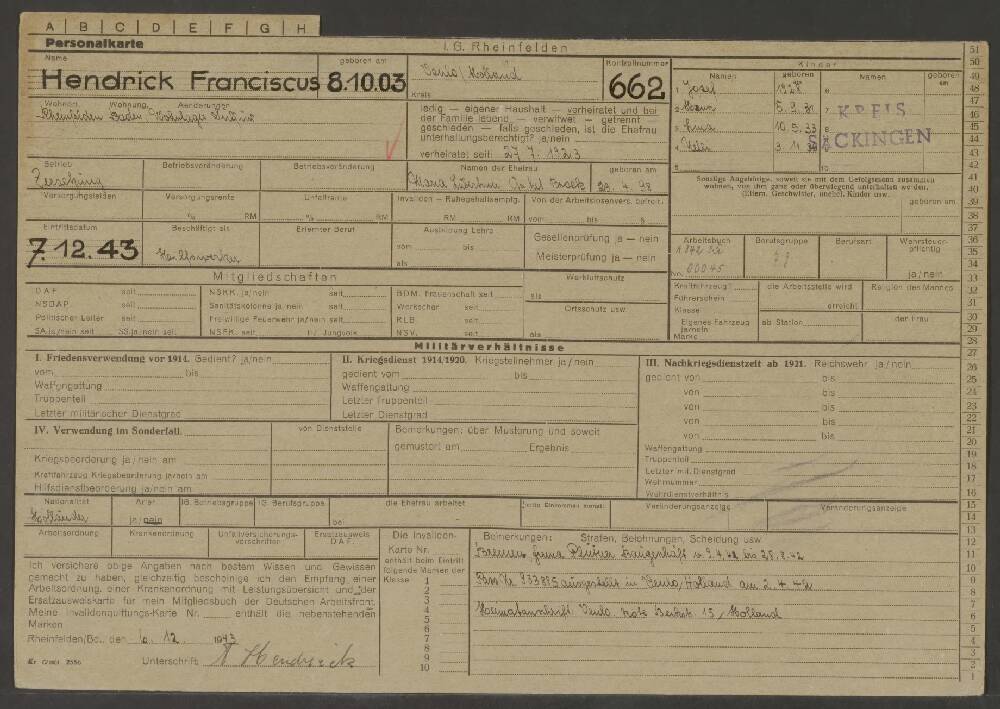 A B C D E F G H
Personalkarte
I. G. Rheinfelden
Name
Hendrick Franciscus
geboren am
8.10.03
Venlo / Holland
Kreis
Kontrollnummer
662
Kinder
Namen geboren am Namen geboren am
1 Josef 1928 6
2 5. 9. 31 7
3 10. 5. 33 8
4 3. 11. 9
5 10
KREIS
SÄCKINGEN
Wohnort, Wohnung, Aenderungen
Rheinfelden Baden
ledig — eigener Haushalt — verheiratet und bei
der Familie lebend — verwitwet — getrennt —
geschieden — falls geschieden, ist die Ehefrau
unterhaltungsberechtigt? ja/nein
verheiratet seit: 27. 7. 1923
Betrieb Betriebsveränderung Betriebsveränderung
Namen der Ehefrau geboren am
23. 4. 98
Sonstige Angehörige, soweit sie mit dem Gefolgsmann zusammen
wohnen, von ihm ganz oder überwiegend unterhalten werden.
(Eltern, Geschwister, unehel. Kinder usw.
geboren am
Versorgungsleiden Versorgungsrente Unfallrente Invaliden - Ruhegehaltsempfg. Von der Arbeitslosenvers. befreit.
% RM % RM RM RM vom bis §
Eintrittsdatum
7.12.43
Beschäftigt als
Erlernter Beruf
Ausbildung Lehre
vom bis
als
Gesellenprüfung ja — nein
Meisterprüfung ja — nein
Arbeitsbuch
No. 00045
Berufsgruppe
Berufsart
Wehrsteuerpflichtig
ja/nein
Mitgliedschaften
DAF seit
NSDAP. seit
Politischer Leiter seit
SA. ja/nein seit SS. ja/nein seit
NSKK. ja/nein seit
Sanitätskolonne ja nein seit
Freiwillige Feuerwehr ja/nein seit
NSFK. seit HJ Jungvolk
BDM. Frauenschaft seit
Werkscher seit
RLB. seit
NSV. seit
Werkluftschutz
als
Ortsschutz usw.
als
Kraftfahrzeug
Führerschein
Klasse
Eigenes Fahrzeug
ja/nein
Marke
die Arbeitsstelle wird
erreicht
ab Station
Religion des Mannes
der Frau
Militärverhältnisse
I. Friedensverwendung vor 1914. Gedient? ja/nein
vom bis
Waffengattung
Truppenteil
Letzter militärischer Dienstgrad
II. Kriegsdienst 1914/1920. Kriegsteilnehmer ja/nein
gedient vom bis
Waffengattung
Letzter Truppenteil
Letzter Dienstgrad
III. Nachkriegsdienstzeit ab 1921. Reichswehr ja/nein
gedient von bis
von bis
von bis
von bis
von bis
Waffengattung
Truppenteil
Letzter mil. Dienstgrad
Wehrnummer
Wehrdienstverhältnis
IV. Verwendung im Sonderfall.
von Dienststelle
Bemerkungen: über Musterung und soweit
gemustert am Ergebnis
Kriegsbeorderung ja/nein am
Kraftfahrzeug Kriegsbeorderung ja/nein am
Hilfsdienstbeorderung ja/nein am
Nationalität
Holländer
Arier
ja/nein
IG. Betriebsgruppe
IG. Berufsgruppe
die Ehefrau arbeitet
bei
Veränderungsanzeige
Veränderungsanzeige
Arbeitsordnung Krankenordnung Unfallversicherungs-vorschriften Ersatzausweis DAF.
Ich versichere obige Angaben nach bestem Wissen und Gewissen
gemacht zu haben, gleichzeitig bescheinige ich den Empfang einer
Arbeitsordnung, einer Krankenordnung mit Leistungsübersicht und der
Ersatzausweiskarte für mein Mitgliedsbuch der Deutschen Arbeitsfront.
Meine Invalidenquittungs-Karte Nr. enthält die nebenstehenden
Marken
Rheinfelden/Bd., den 6. 12. 1943
Unterschrift:
Die Invaliden-
Karte Nr.
enthält beim Eintritt
folgende Marken der
Klasse 1
2
3
4
5
6
7
8
9
10
Bemerkungen: Strafen, Belehrungen, Scheidung usw.
Bremen, Firma
ausgestellt in Venlo, Holland am 2. 4. 42
Heimatanschrift Venlo, 15, Holland
51
50
49
48
47
46
45
44
43
42
41
40
39
38
37
36
35
34
33
32
31
30
29
28
27
26
25
24
23
22
21
20
19
18
17
16
15
14
13
12
11
10
9
8
7
6
5
4
3
2
1